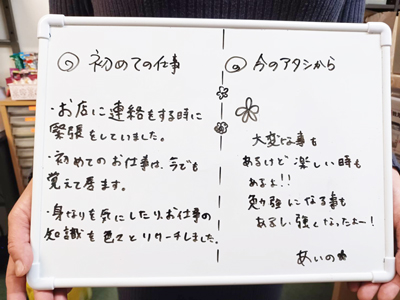 初めての仕事
・お店に連絡をする時に
緊張をしていました。
・初めてのお仕事は、今でも
覚えて居ます。
・身なりを気にしたり、お仕事の
知識を色々とリサーチしました。
今のアタシから
大変な事も
あるけど楽しい時も
あるよ!!
勉強になる事も
あるし強くなったよー!
あいの